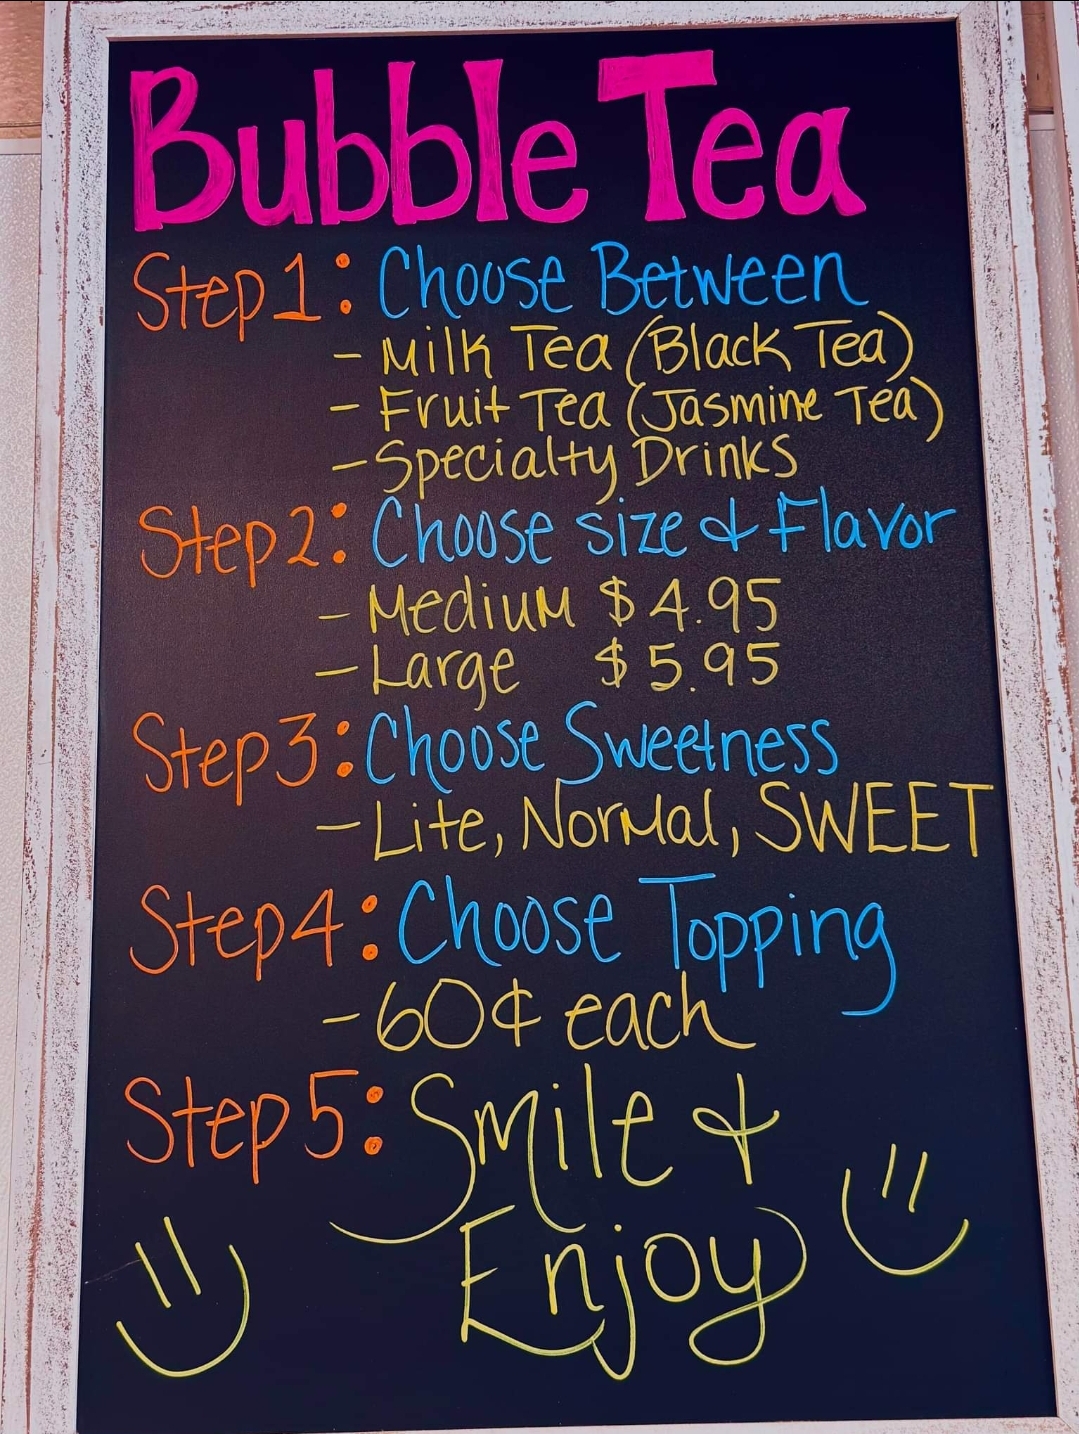 Bubble Tea
Step 1: Choose Between
- Milk Tea (Black Tea)
- Fruit Tea (Jasmine Tea)
- Specialty Drinks
Step 2: Choose size & Flavor
- Medium $4.95
- Large $5.95
Step 3: Choose Sweetness
- Lite, Normal, SWEET
Step 4: Choose Topping
- 60¢ each
Step 5: Smile &
Enjoy